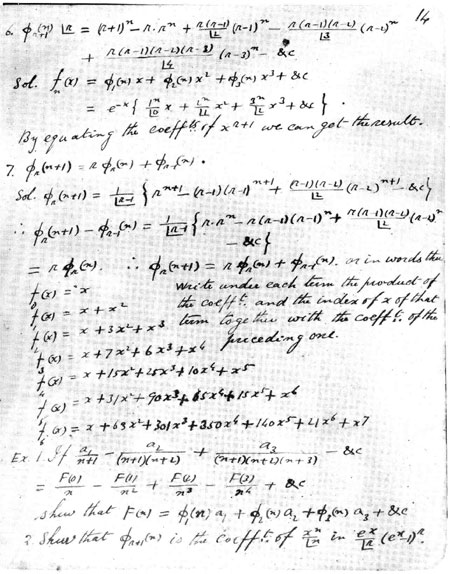 14
6. ϕ_{r+1}(n) |r = (r+1)^n − r·r^n + r(r−1)/|2 (r−1)^n − r(r−1)(r−2)/|3 (r−2)^n
+ r(r−1)(r−2)(r−3)/|4 (r−3)^n − &c
Sol. f_n(x) = ϕ_1(n) x + ϕ_2(n) x² + ϕ_3(n) x³ + &c
= e^{−x} { 1^n/|0 x + 2^n/|1 x² + 3^n/|2 x³ + &c } .
By equating the coeff^{ts}. of x^{r+1} we can get the result.
7. ϕ_r(n+1) = r ϕ_r(n) + ϕ_{r−1}(n).
Sol. ϕ_r(n+1) = 1/|r−1 { r^{n+1} − (r−1)(r−1)^{n+1} + (r−1)(r−2)/|2 (r−2)^{n+1} − &c }
∴ ϕ_r(n+1) − ϕ_{r−1}(n) = 1/|r−1 { r·r^n − r(r−1)(r−1)^n + r(r−1)(r−2)/|2 (r−2)^n
− &c }
= r ϕ_r(n). ∴ ϕ_r(n+1) = r ϕ_r(n) + ϕ_{r−1}(n). or in words thus
f_0(x) = x write under each term the product of
f_1(x) = x + x² the coeff^t. and the index of x of that
f_2(x) = x + 3x² + x³ term together with the coeff^t. of the
f_3(x) = x + 7x² + 6x³ + x⁴ preceding one.
f_4(x) = x + 15x² + 25x³ + 10x⁴ + x⁵
f_5(x) = x + 31x² + 90x³ + 65x⁴ + 15x⁵ + x⁶
f_6(x) = x + 63x² + 301x³ + 350x⁴ + 140x⁵ + 21x⁶ + x⁷
Ex. 1. If a_1/(n+1) − a_2/((n+1)(n+2)) + a_3/((n+1)(n+2)(n+3)) − &c
= F(0)/n − F(1)/n² + F(2)/n³ − F(3)/n⁴ + &c
show that F(n) = ϕ_1(n) a_1 + ϕ_2(n) a_2 + ϕ_3(n) a_3 + &c
2. Shew that ϕ_{r+1}(n) is the coeff^t. of x^n/|n in e^x/|r (e^x−1)^r.